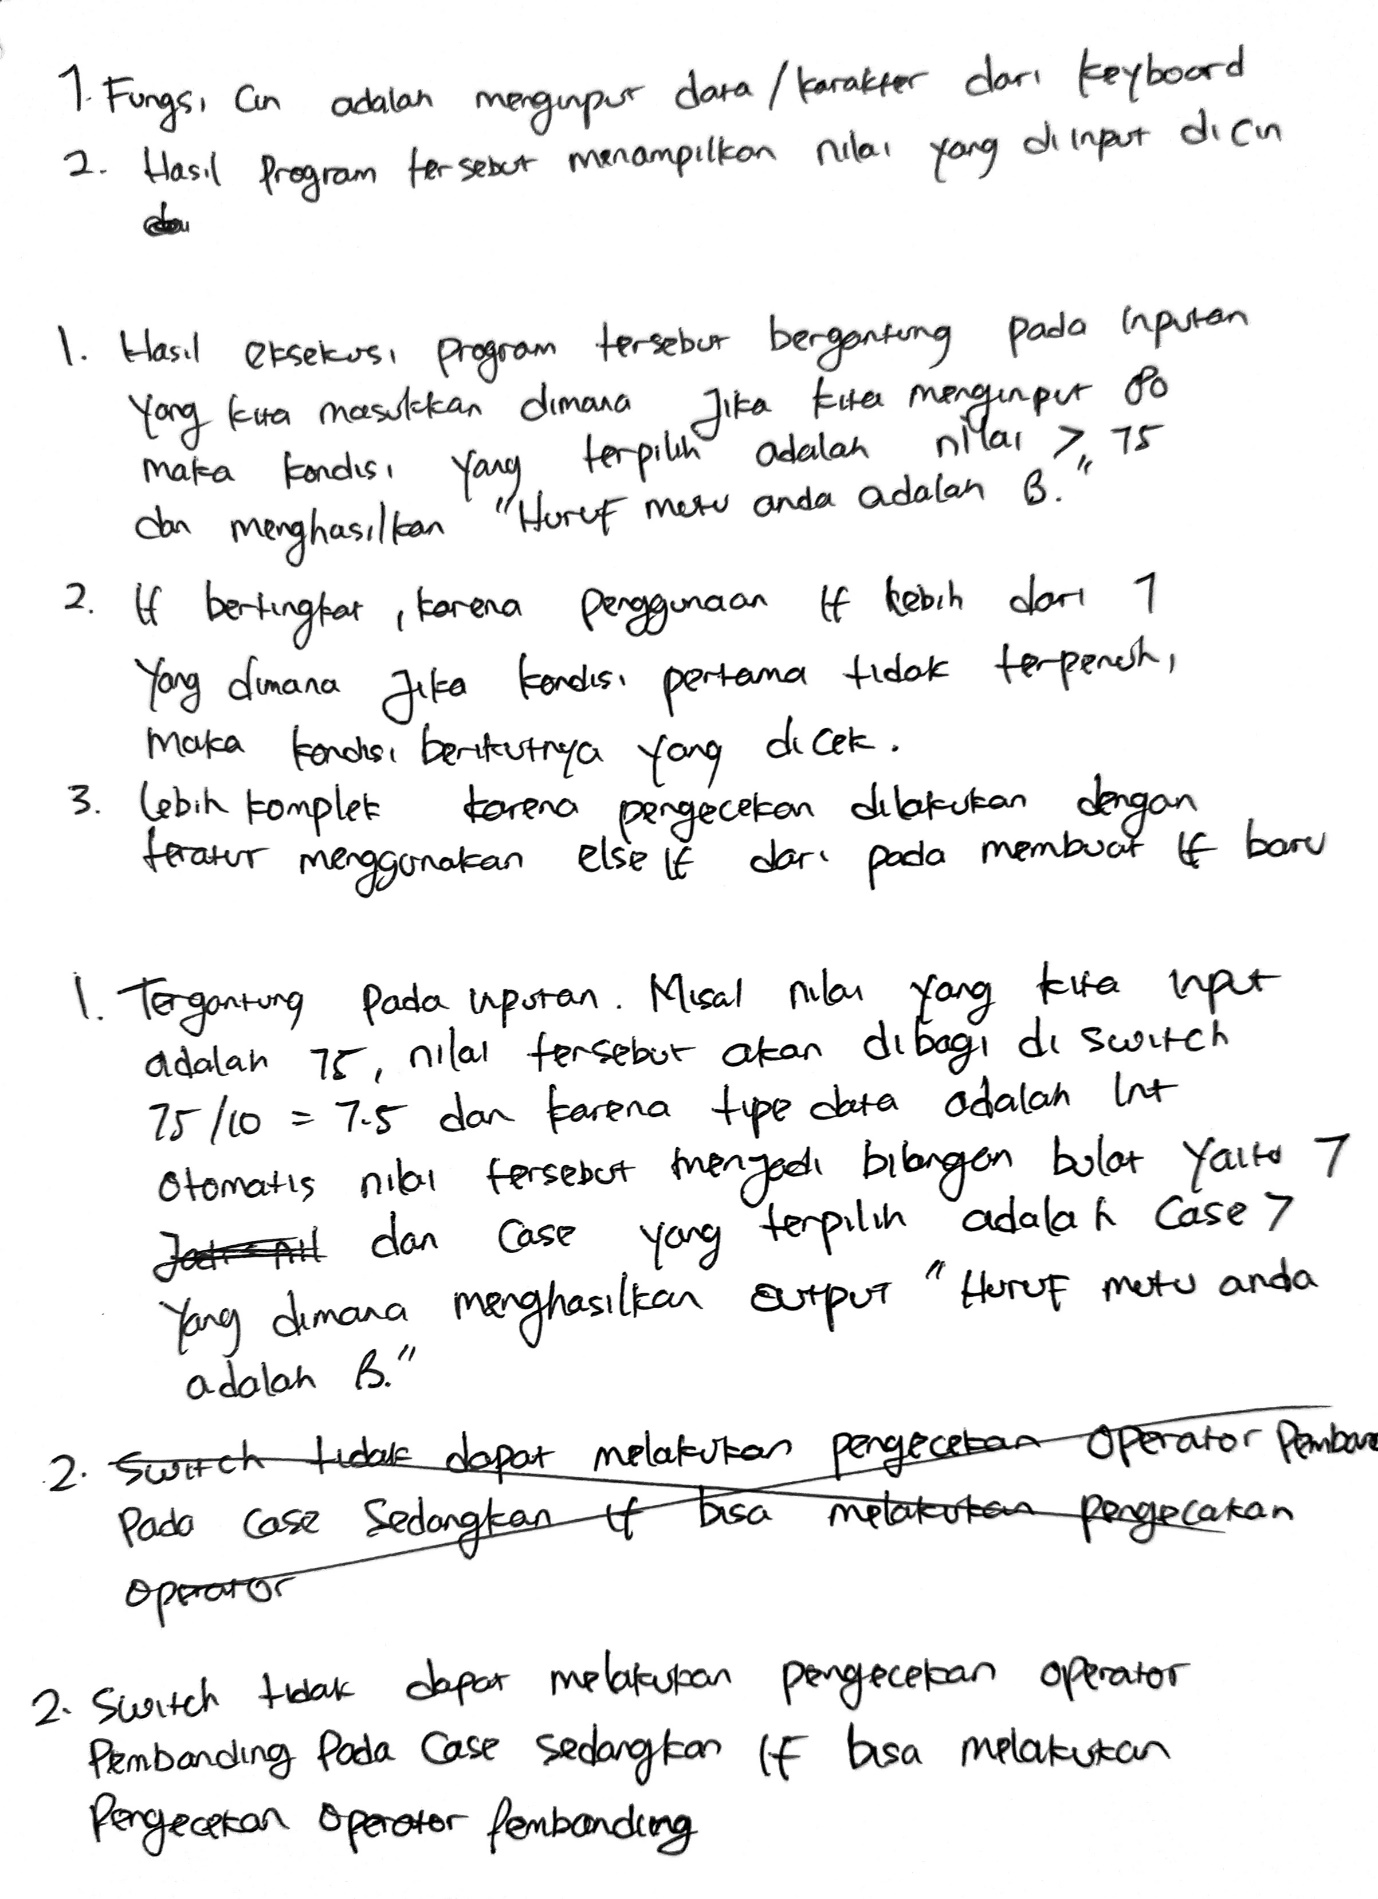 1. Fungsi Cin adalah menginput data/karakter dari keyboard
2. Hasil Program tersebut menampilkan nilai yang di input di cin
1. Hasil eksekusi program tersebut bergantung pada inputan
yang kita masukkan dimana Jika kita menginput 80
maka kondisi yang terpilih adalah nilai > 75
dan menghasilkan "Huruf mutu anda adalah B."
2. If bertingkat, karena penggunaan If kebih dari 1
Yang dimana Jika kondisi pertama tidak terpenuhi,
maka kondisi berikutnya yang di cek.
3. Lebih komplek karena pengecekan dilakukan dengan
teratur menggunakan else if dari pada membuat if baru
1. Tergantung Pada inputan. Misal nilai yang kita input
adalah 75, nilai tersebut akan dibagi di switch
75/10 = 7.5 dan karena tipe data adalah Int
Otomatis nilai tersebut menjadi bilangan bulat yaitu 7
dan Case yang terpilih adalah Case 7
Yang dimana menghasilkan output "Huruf mutu anda
adalah B."
2. Switch tidak dapat melakukan pengecekan Operator Pemban
Pada Case Sedangkan If bisa melakukan pengecakan
operator
2. Switch tidak dapat melakukan pengecekan operator
Pembanding Pada Case sedangkan If bisa melakukan
Pengecekan Operator Pembanding